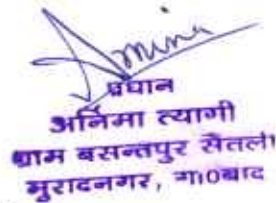 Amina
प्रधान
अनिमा त्यागी
ग्राम बसन्तपुर सैतली
मुरादनगर, गा0बाद